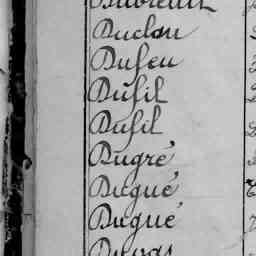 Dubreuil
Duclou
Dufeu
Dufil
Dufil
Dugré
Dugué
Dugué